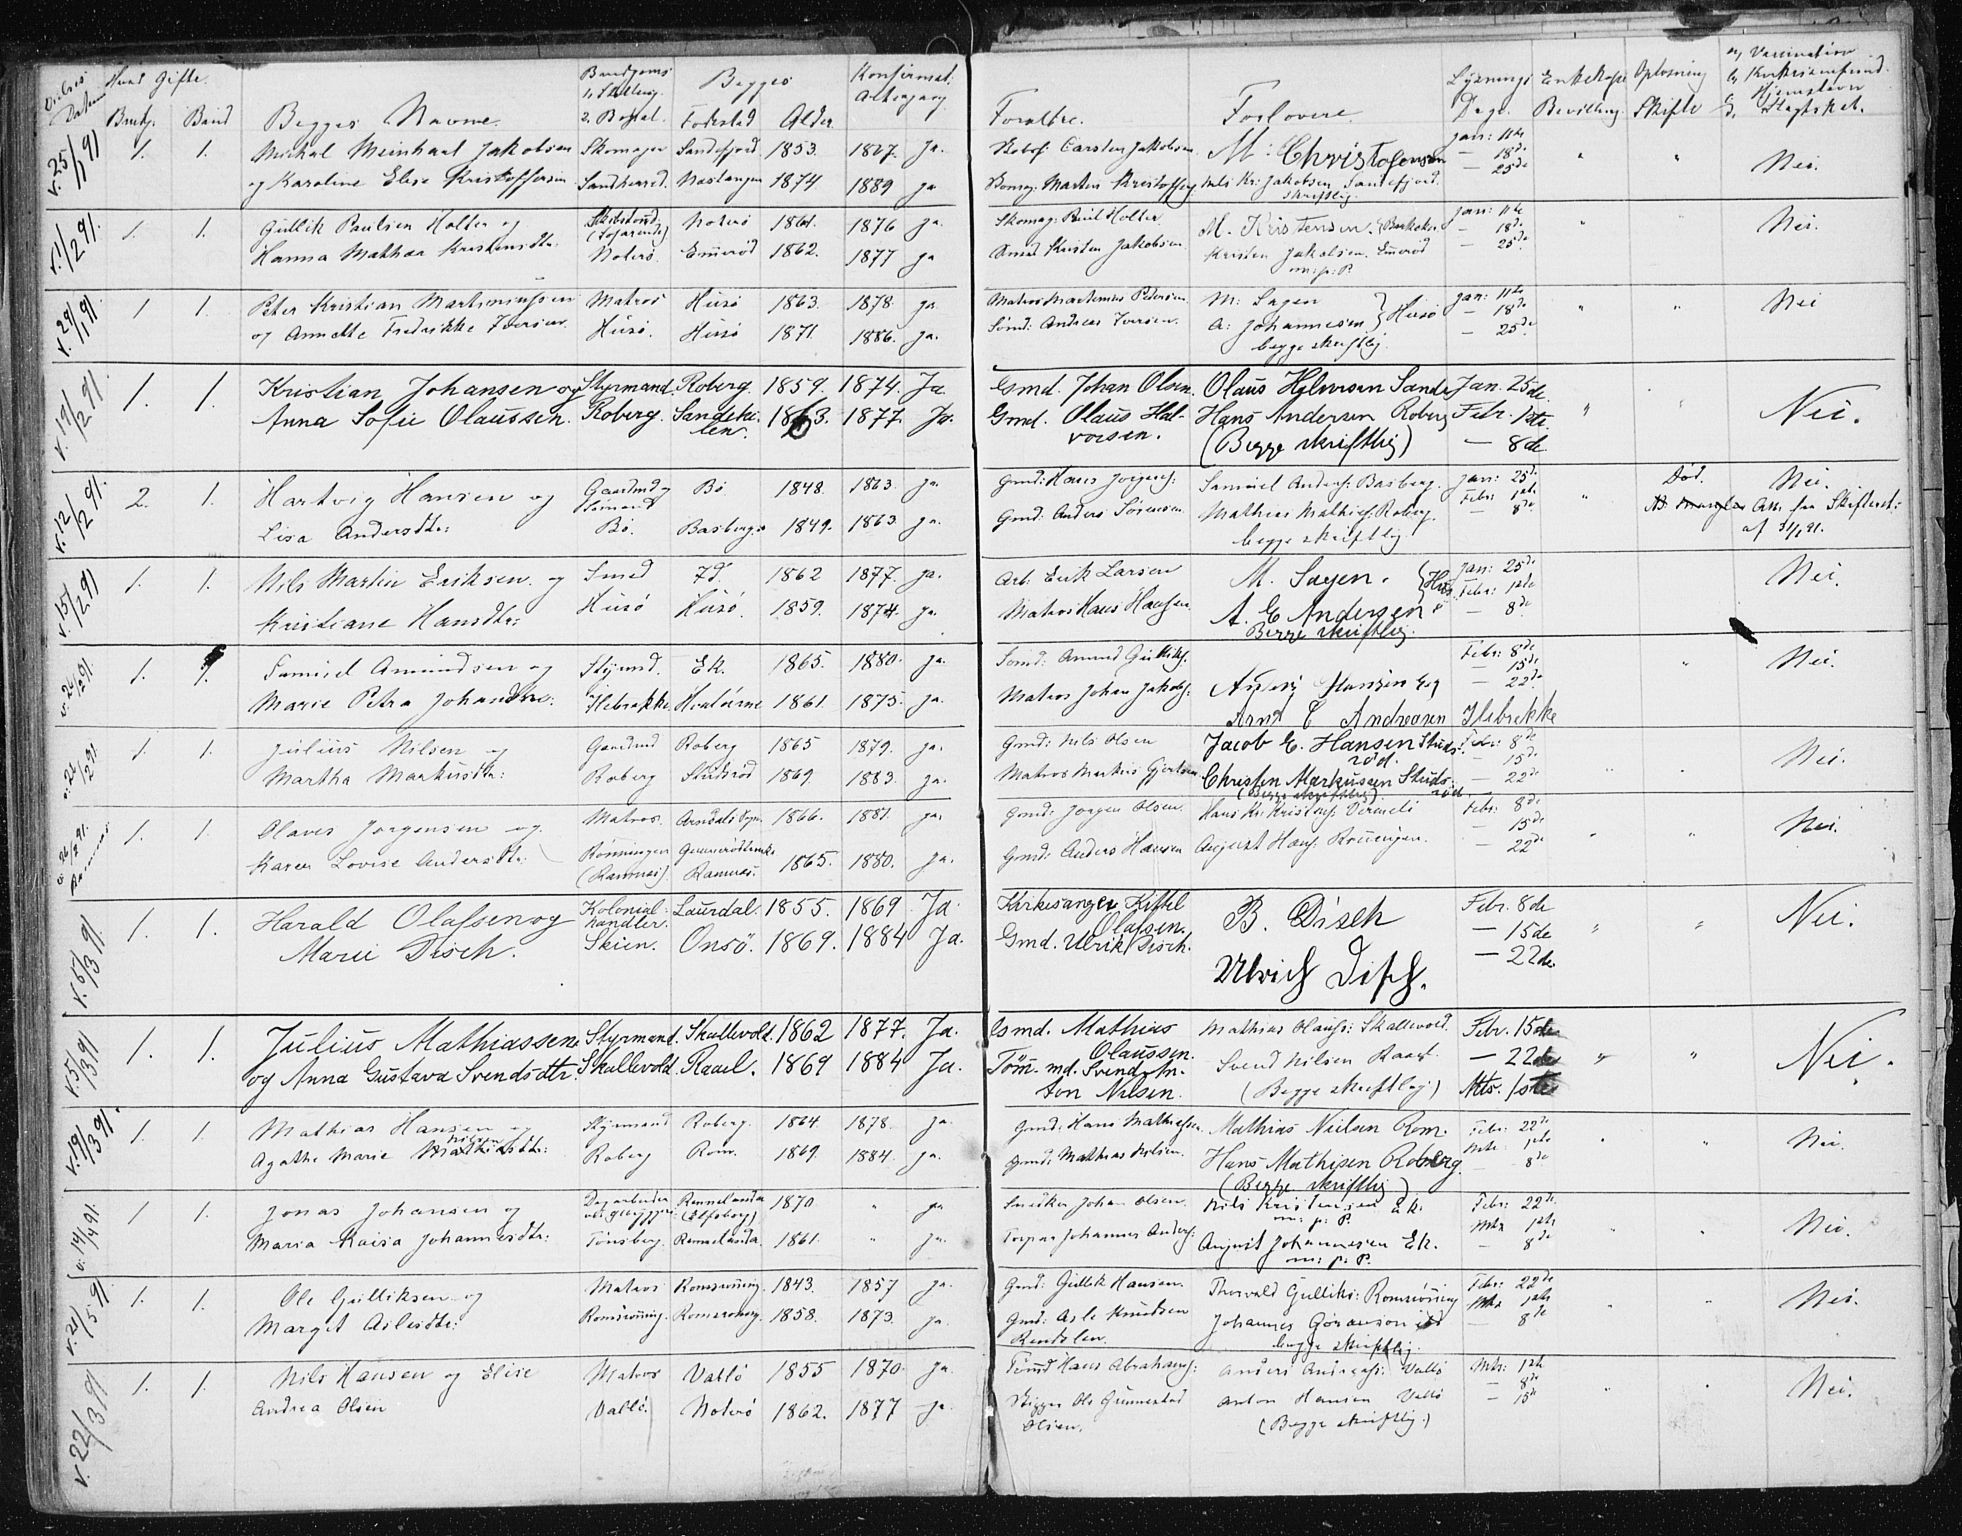 Vielses Datum Hvad Gifte. Brudg. Brud Begges Navne. Brudgoms 1, Stilling. 2. Bopæl. Begges Fødested Alder Konfirmat: Altergang Forældre. Forlovere. Lysnings Dage. Enkekaſse Bevilling Oplosning Skifte a, Vaccination b, Hjemstavn
v. 25/1 91 1. 1. Michal Meinhart Jakobsen Skomager Sandefjord 1853. 1867. Ja. Carsten Jakobsen M: Christofersen Jan: 11te " " Nei.
og Karoline Elise Kristoffersen. Næstangen 1874 1889 ja Martin Kristoffers. Nils Kr: Jakobsen Sandefjord. — 18de
skriftlig. — 25de
v. 1/2 91. 1. 1. Gullik Paulsen Holter og Noterö 1861. 1876 ja Skomag: Paul Holter M. Kristensen. Jan: 11te " " Nei.
Hanna Mathea Kristensdtr: Noterö. Emerød 1862. 1877 ja Kristen Jakobsen. Kristen Jakobsen. Emerød — 18de
m: p: P. — 25de
v. 29/1 91. 1 1. Peter Kristian Martiniussen Matros Husö 1863. 1878. ja. Matros Martinius Petersen. M: Sagen } Husö Jan: 11te " " Nei
og Annette Fredrikke Iversen. Husö. Husö 1871. 1886. ja. Sömd: Andreas Iversen. A: Johannesen — 18de
begge skriftlig. — 25de
v. 19/2 91. 1. 1. Kristian Johansen og Styrmand. Roberg. 1859. 1874. Ja Gmd. Johan Olsen. Olaus Halvorsen Sande Jan. 25de " Nei.
Anna Sofie Olaussen. Roberg. Sandeko- len. 1863. 1877. Ja. Gmd. Olaus Hal- vorsen. Hans Andersen Roberg Febr. 1ste
(Begge skriftlig) — 8de
v. 12/2 91. 2. 1. Hartvig Hansen og Gaardmd og Sömand Bö 1848. 1863. ja. Gmd: Hans Jörgens: Samuel Anders: Basberg. Jan: 25de " Död. Nei.
Lisa Andersdtr: Bö. Basberg. 1849. 1863. ja. Gmd: Anders Sörensen. Mathias Mathis: Roberg. Febr: 1ste Att. fra Skifteret:
begge skriftlig. — 8de af 31/1 91.
v. 15/2 91 1. 1. Nils Martin Eriksen og Smed 1862 1877. ja. Arb: Erik Larsen M. Sagen. Jan: 25de Nei.
Kristiane Hansdtr: Husö Husö. 1859. 1874. ja. Matros Hans Hansen A. E Andersen Febr: 1ste
Begge skriftlig. — 8de
v. 26/2 91. 1. 1. Samuel Amundsen og Stymd. Ek. 1865. 1880. ja. Sömd: Amund Gulliks: Febr: 8de " Nei.
— 15de
Marie Petra Johansdtr: Ilebrekke. 1861. 1875. ja. Matros Johan Jakobs: Hansen — 22de
Arnt C Andresen Ilebrekke
v. 26/2 91. 1. 1. Julius Nilsen og Gaardmd Roberg 1865 1879. ja. Gmd: Nils Olsen Jacob E. Hansen Studs- röd. Febr: 8de Nei.
— 15de
Martha Markusdtr: Roberg Studsröd 1869. 1883. ja. Matros Markus Gjertsen Christen Markussen Studs- röd. — 22de
(Begge skriftlig)
v. 26/2 91. Ramnæs 1. 1. Olaves Jorgensen og Matros. 1866. 1881. ja. Gmd: Jorgen Olsen. Hans Kr: Kristens: Febr: 8de " " Nei.
— 15de
Karen Lovise Andersdtr: Rönningen (Ramnæs) Ramnæs. 1865. 1880. ja. Gmd: Anders Hansen August Hans: — 22de
v. 5/3 91 1. 1. Harald Olafsen og Kolonial- handler. Laurdal. 1855. 1869 Ja. Kirkesanger Kittel Olafsen. B. Disch Febr. 8de " " Nei.
Marie Disch. Skien. Onsö. 1869. 1884 Ja. Gmd. Ulrik Disch. Ulrich Disch. — 15de
— 22de
v. 5/3 91 1. 1. Julius Mathiassen Styrmand. Skallevold. 1862 1877. Ja. Gmd. Mathias Olaussen. Mathias Olauss: Skallevold. Febr. 15de " " Nei.
og Anna Gustava Svendsdtr. Skallevold. Raael. 1869 1884 Ja. Töm. md. Svend An- ton Nilsen. Svend Nilsen Raael. — 22de
(Begge skriftlig) Mts. 1ste
v. 19/3 91. 1. 1. Mathias Hansen og Styrmand Roberg. 1864. 1878. ja. Gmd: Hans Mathiesen Mathias Nielsen Rom. Febr: 22de " " Nei.
Agathe Marie Nilsen Roberg Rom. 1869. 1884. ja. Gmd: Mathias Nilsen. Hans Mathisen Roberg. Mts: 1ste
(Begge skriftlig) — 8de
v. 14/4 91. 1 1. Jonas Johansen og Dagarbeider Rennelanda (Elfsborg) 1870 " ja Snedker Johan Olsen. Nils Kristensen Ek. Febr: 22de Nei.
m: p: P. Mts 1ste
Maria Kaisa Johannesdtr: Tönsberg. Rennelanda. 1861. " ja. Torpar Johannes Anders: August Johannesen Ek. — 8de
m: p: P.
v. 21/5 91. 1. 1. Ole Gulliksen og Matros Romsröning. 1843. 1857 ja. Gmd: Gullik Hansen. Thorvald Gulliks: Romsröning Febr: 22de " " Nei.
Marget Aslesdtr: Romsröning. 1858. 1873. ja. Gmd: Asle Knudsen Johannes Göranson Mts 1ste
begge skriftlig. — 8de
v. 22/3 91. 1. 1. Nils Hansen og Elise Matros Vallö 1855 1870. ja. Hans Abrahams: Anders Andreas: Vallö Mts: 1ste " Nei.
— 8de
Andrea Olsen Vallö. Noterö 1862. 1877 ja. Ole Gunnestad Olsen. Anton Hansen Vallö — 15de
(Begge skriftlig.)